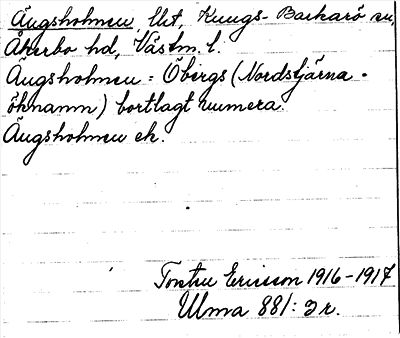 Ängsholmen, lht, Kungs-Barkarö sn,
Åkerbo hd, Västm. l.
Ängsholmen = Öbergs (Nordstjärna.
öknamn) bortlagt numera.
Ängsholmen ek.
Torsten Ericsson 1916-1917
Ulma 881: 2 r.